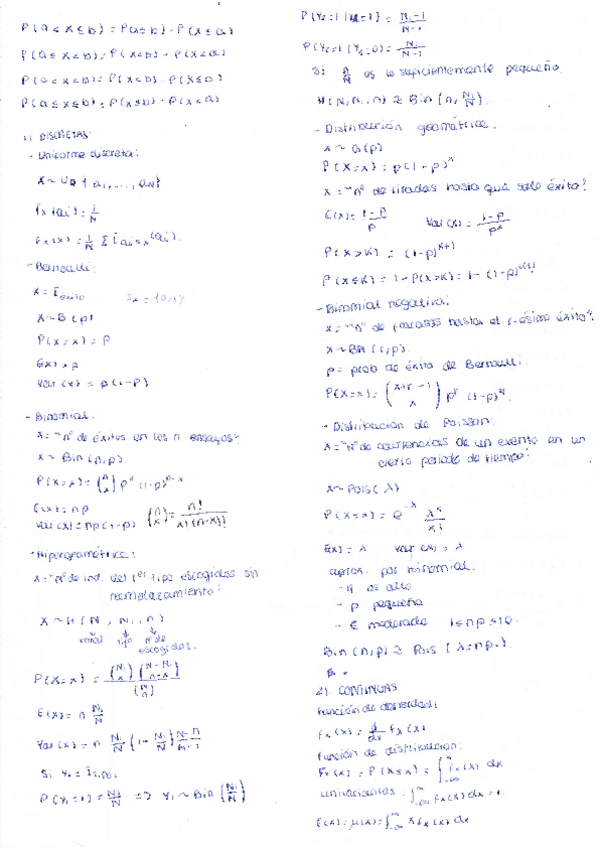 P(a < x ≤ b) = P(x ≤ b) - P(x ≤ a)
P(a ≤ x < b) = P(x < b) - P(x < a)
P(a < x < b) = P(x < b) - P(x ≤ a)
P(a ≤ x ≤ b) = P(x ≤ b) - P(x < a)
1) DISCRETAS:
- Uniforme discreta:
X ~ U {a1, ..., aN}
= 1/N
- Bernoulli:
X = I éxito
X ~ B(p)
P(X = x) = p
E(x) = p
Var(x) = p(1-p)
- Binomial.
X = "nº de éxitos en los n ensayos"
X ~ Bin(n,p)
P(X = x) = (n x) p^x (1-p)^n-x
E(x) = np
Var(x) = np(1-p) (n x) = n! / x!(n-x)!
- Hipergeométrica:
X = "Nº de ind. del 1er tipo escogidos sin
reemplazamiento"
X ~ H(N, N1, n)
tipo nº de
escogidos.
P(X = x) = (N1 x)(N-N1 n-x) / (N n)
E(x) = n N1/N
Var(x) = n N1/N (1 - N1/N) N-n/N-1
Si
P(Y1 = 1) = N1/N => Y1 ~ Bin(N1/N)
= N1-1 / N-1
= N1 / N-1
Si n/N es lo suficientemente pequeño.
H(N, N1, n) ≈ Bin(n, N1/N).
- Distribución geométrica.
X ~ G(p)
P(X = x) = p(1-p)^x
X = "nº de tiradas hasta que sale éxito"
E(x) = 1-p / p Var(x) = 1-p / p²
P(X > k) = (1-p)^k+1
P(X ≤ k) = 1 - P(X > k) = 1 - (1-p)^k+1
- Binomial negativa:
X = "nº de fracasos hasta el r-ésimo éxito".
X ~ BN(r,p).
p = prob de éxito de Bernoulli.
P(X = x) = (x+r-1 x) p^r (1-p)^x
- Distribución de Poisson:
X = "Nº de ocurrencias de un evento en un
cierto periodo de tiempo"
X ~ Pois(λ)
P(X = x) = e^-λ λ^x / x!
E(x) = λ Var(x) = λ
aprox. por binomial.
- n es alto
- p pequeña
- E moderada 1 ≤ np ≤ 10.
Bin(n,p) ≈ Pois(λ = np).
2) CONTINUAS
Función de densidad:
fx(x) = d/dx Fx(x)
Función de distribución:
Fx(x) = P(X ≤ x) = ∫ fx(x) dx
∫ fx(x) dx = 1.
E(x) = μ(x) = ∫ x fx(x) dx